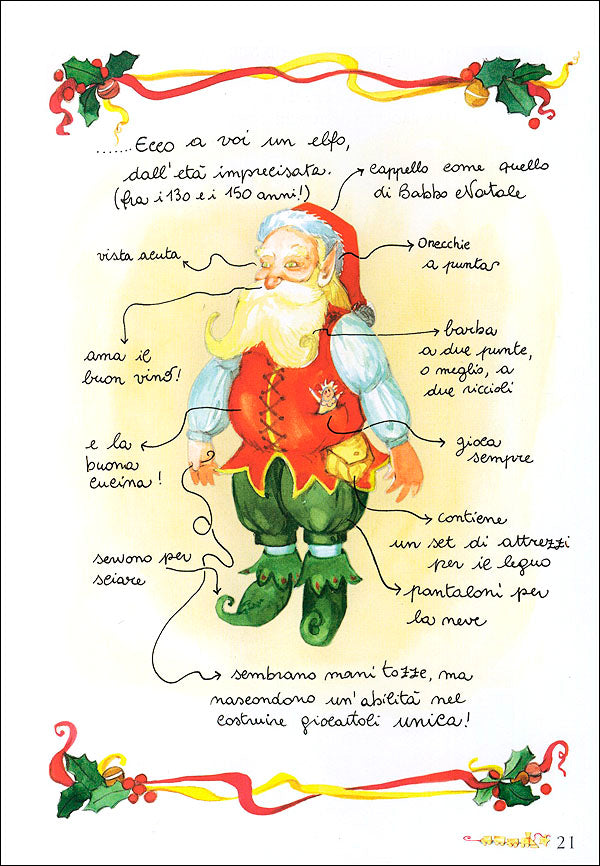 .......Ecco a voi un elfo,
dall'età imprecisata.
(fra i 130 e i 150 anni!)
cappello come quello
di Babbo Natale
vista acuta
Orecchie
a punta
ama il
buon vino!
barba
a due punte,
o meglio, a
due riccioli
e la
buona
cucina!
gioca
sempre
contiene
un set di attrezzi
per il legno
servono per
sciare
pantaloni per
la neve
sembrano mani tozze, ma
nascondono un'abilità nel
costruire giocattoli unica!
21